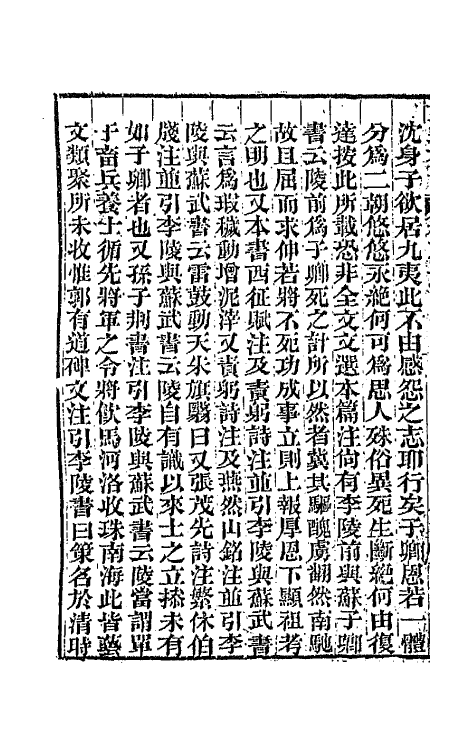 沈身子欲居九夷此不由感怨之志耶行矣子卿恩若一體
分爲二朝悠悠永絶何可爲思人殊俗異死生斷絶何由復
達按此所載恐非全文文選本篇注尙有李陵前與蘇子卿
書云陵前爲子卿死之計所以然者冀其驅醜虜翻然南馳
故且屈而求伸若將不死功成事立則上報厚恩下顯祖考
之明也又本書西征賦注及責躬詩注並引李陵與蘇武書
云言爲瑕穢動增泥滓又責躬詩注及燕然山銘注並引李
陵與蘇武書云雷鼓動天朱旗翳日又張茂先詩注繁休伯
牋注並引李陵與蘇武書云陵自有識以來士之立操未有
如子卿者也又孫子荆書注引李陵與蘇武書云陵當謂單
于畜兵養士循先將軍之令將飮馬河洛收珠南海此皆藝
文類聚所未收惟郭有道碑文注引李陵書曰策名於清時